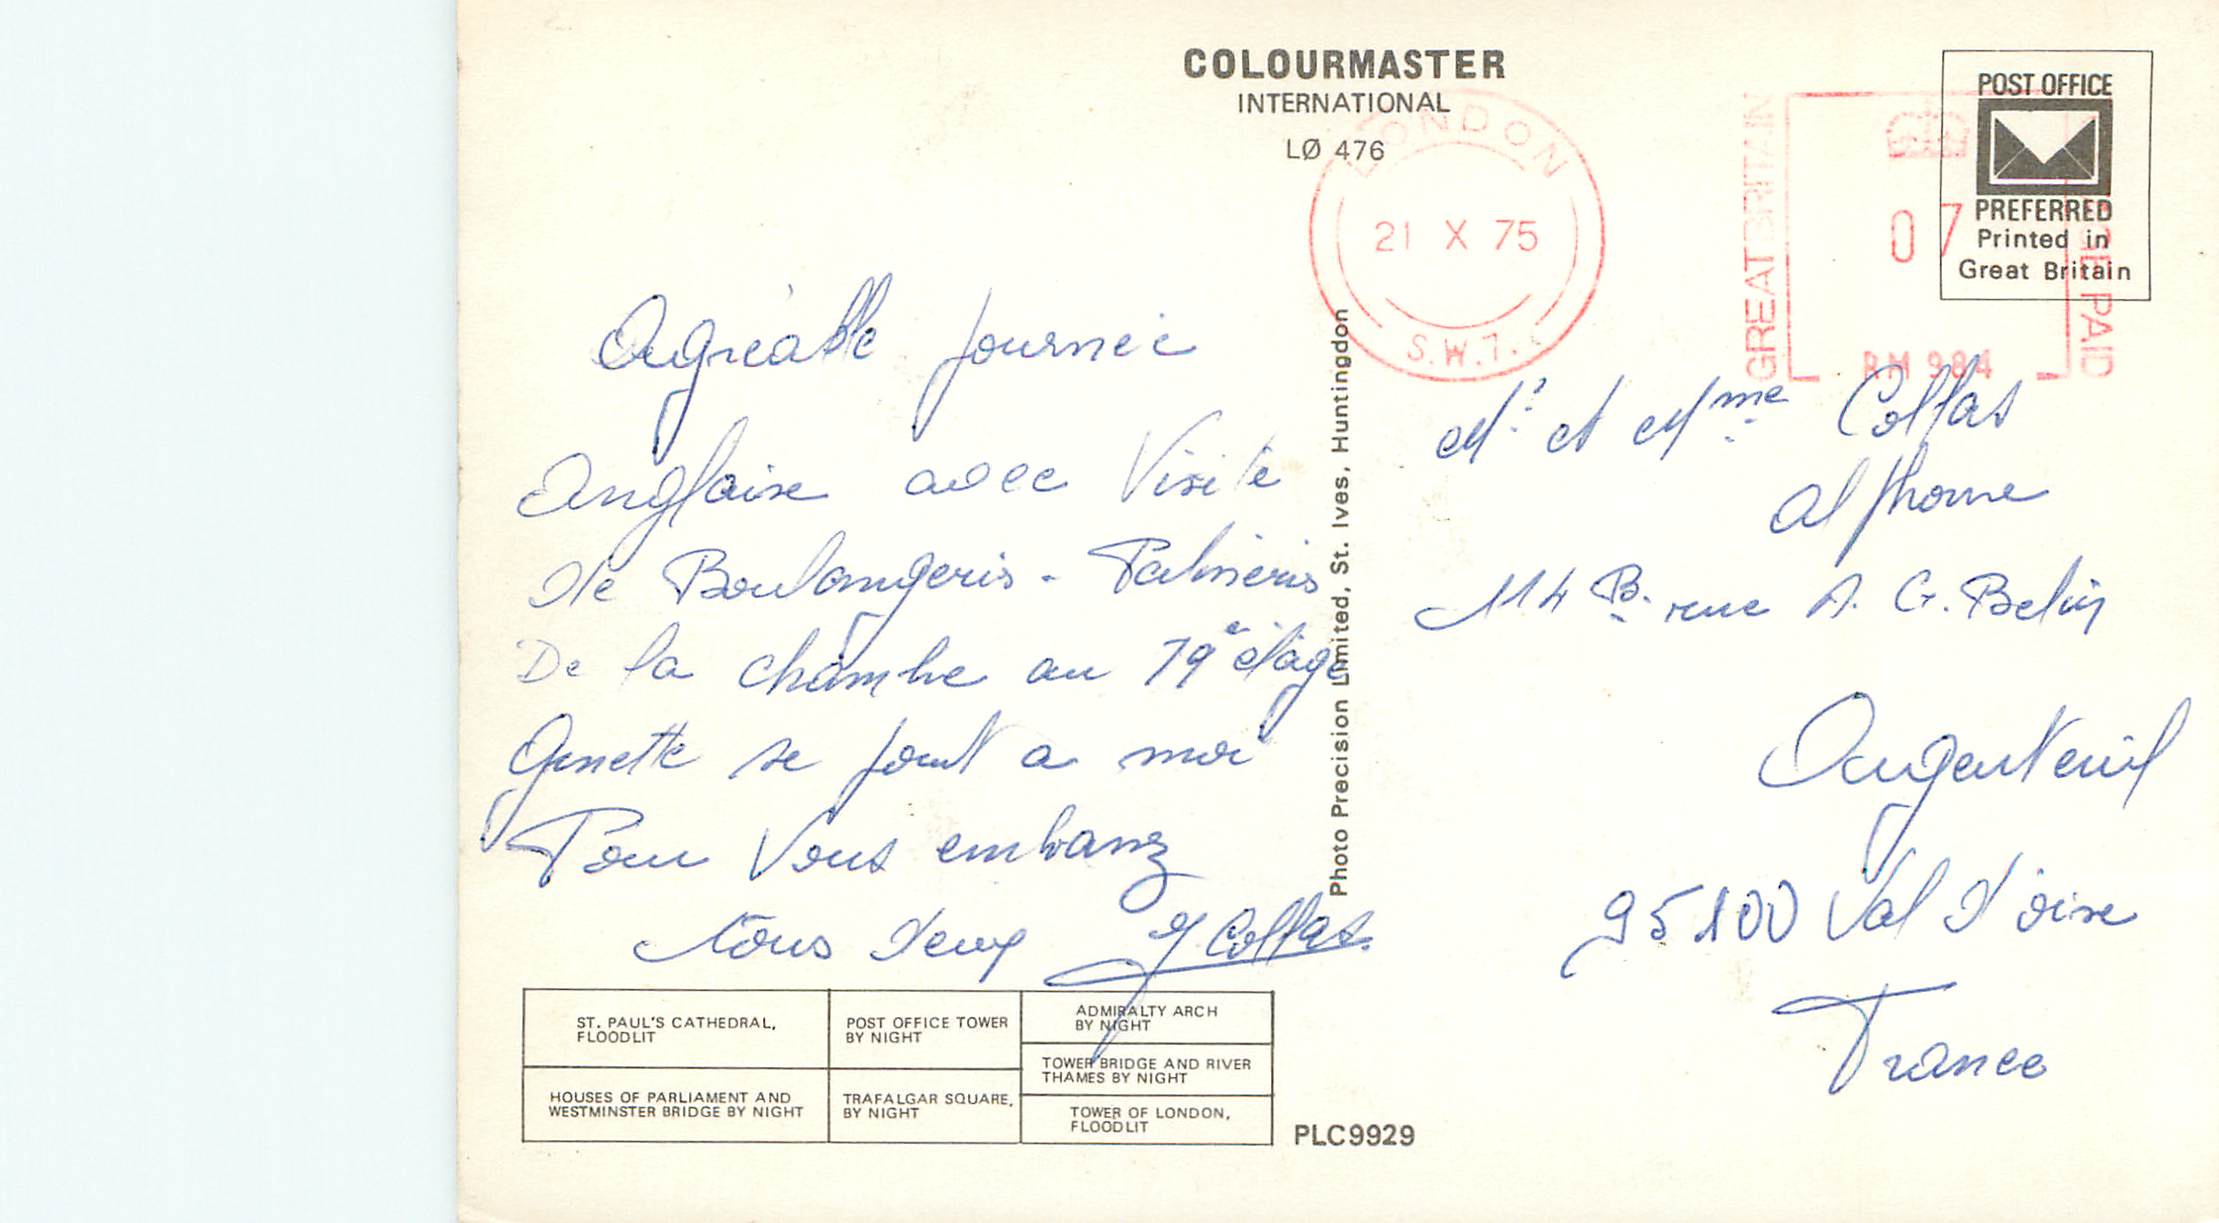 COLOURMASTER
INTERNATIONAL
LØ 476
LONDON
21 X 75
S.W.1.
GREAT BRITAIN
07
RM 984
GE PAID
POST OFFICE
PREFERRED
Printed in
Great Britain
Agréable journée
Anglaise avec Visite
de Boulangeris - Patiseris
De la chambre au 19e étage
Ginette se joint a moi
Pour Vous embrasz
tous deux J Collas.
Photo Precision Limited, St. Ives, Huntingdon
Mr. et Mme Collas
Alphonse
114 B. rue A. G. Belin
Argenteuil
95100 Val d'oise
France
ST. PAUL'S CATHEDRAL,
FLOODLIT
POST OFFICE TOWER
BY NIGHT
ADMIRALTY ARCH
BY NIGHT
TOWER BRIDGE AND RIVER
THAMES BY NIGHT
HOUSES OF PARLIAMENT AND
WESTMINSTER BRIDGE BY NIGHT
TRAFALGAR SQUARE,
BY NIGHT
TOWER OF LONDON,
FLOODLIT
PLC9929